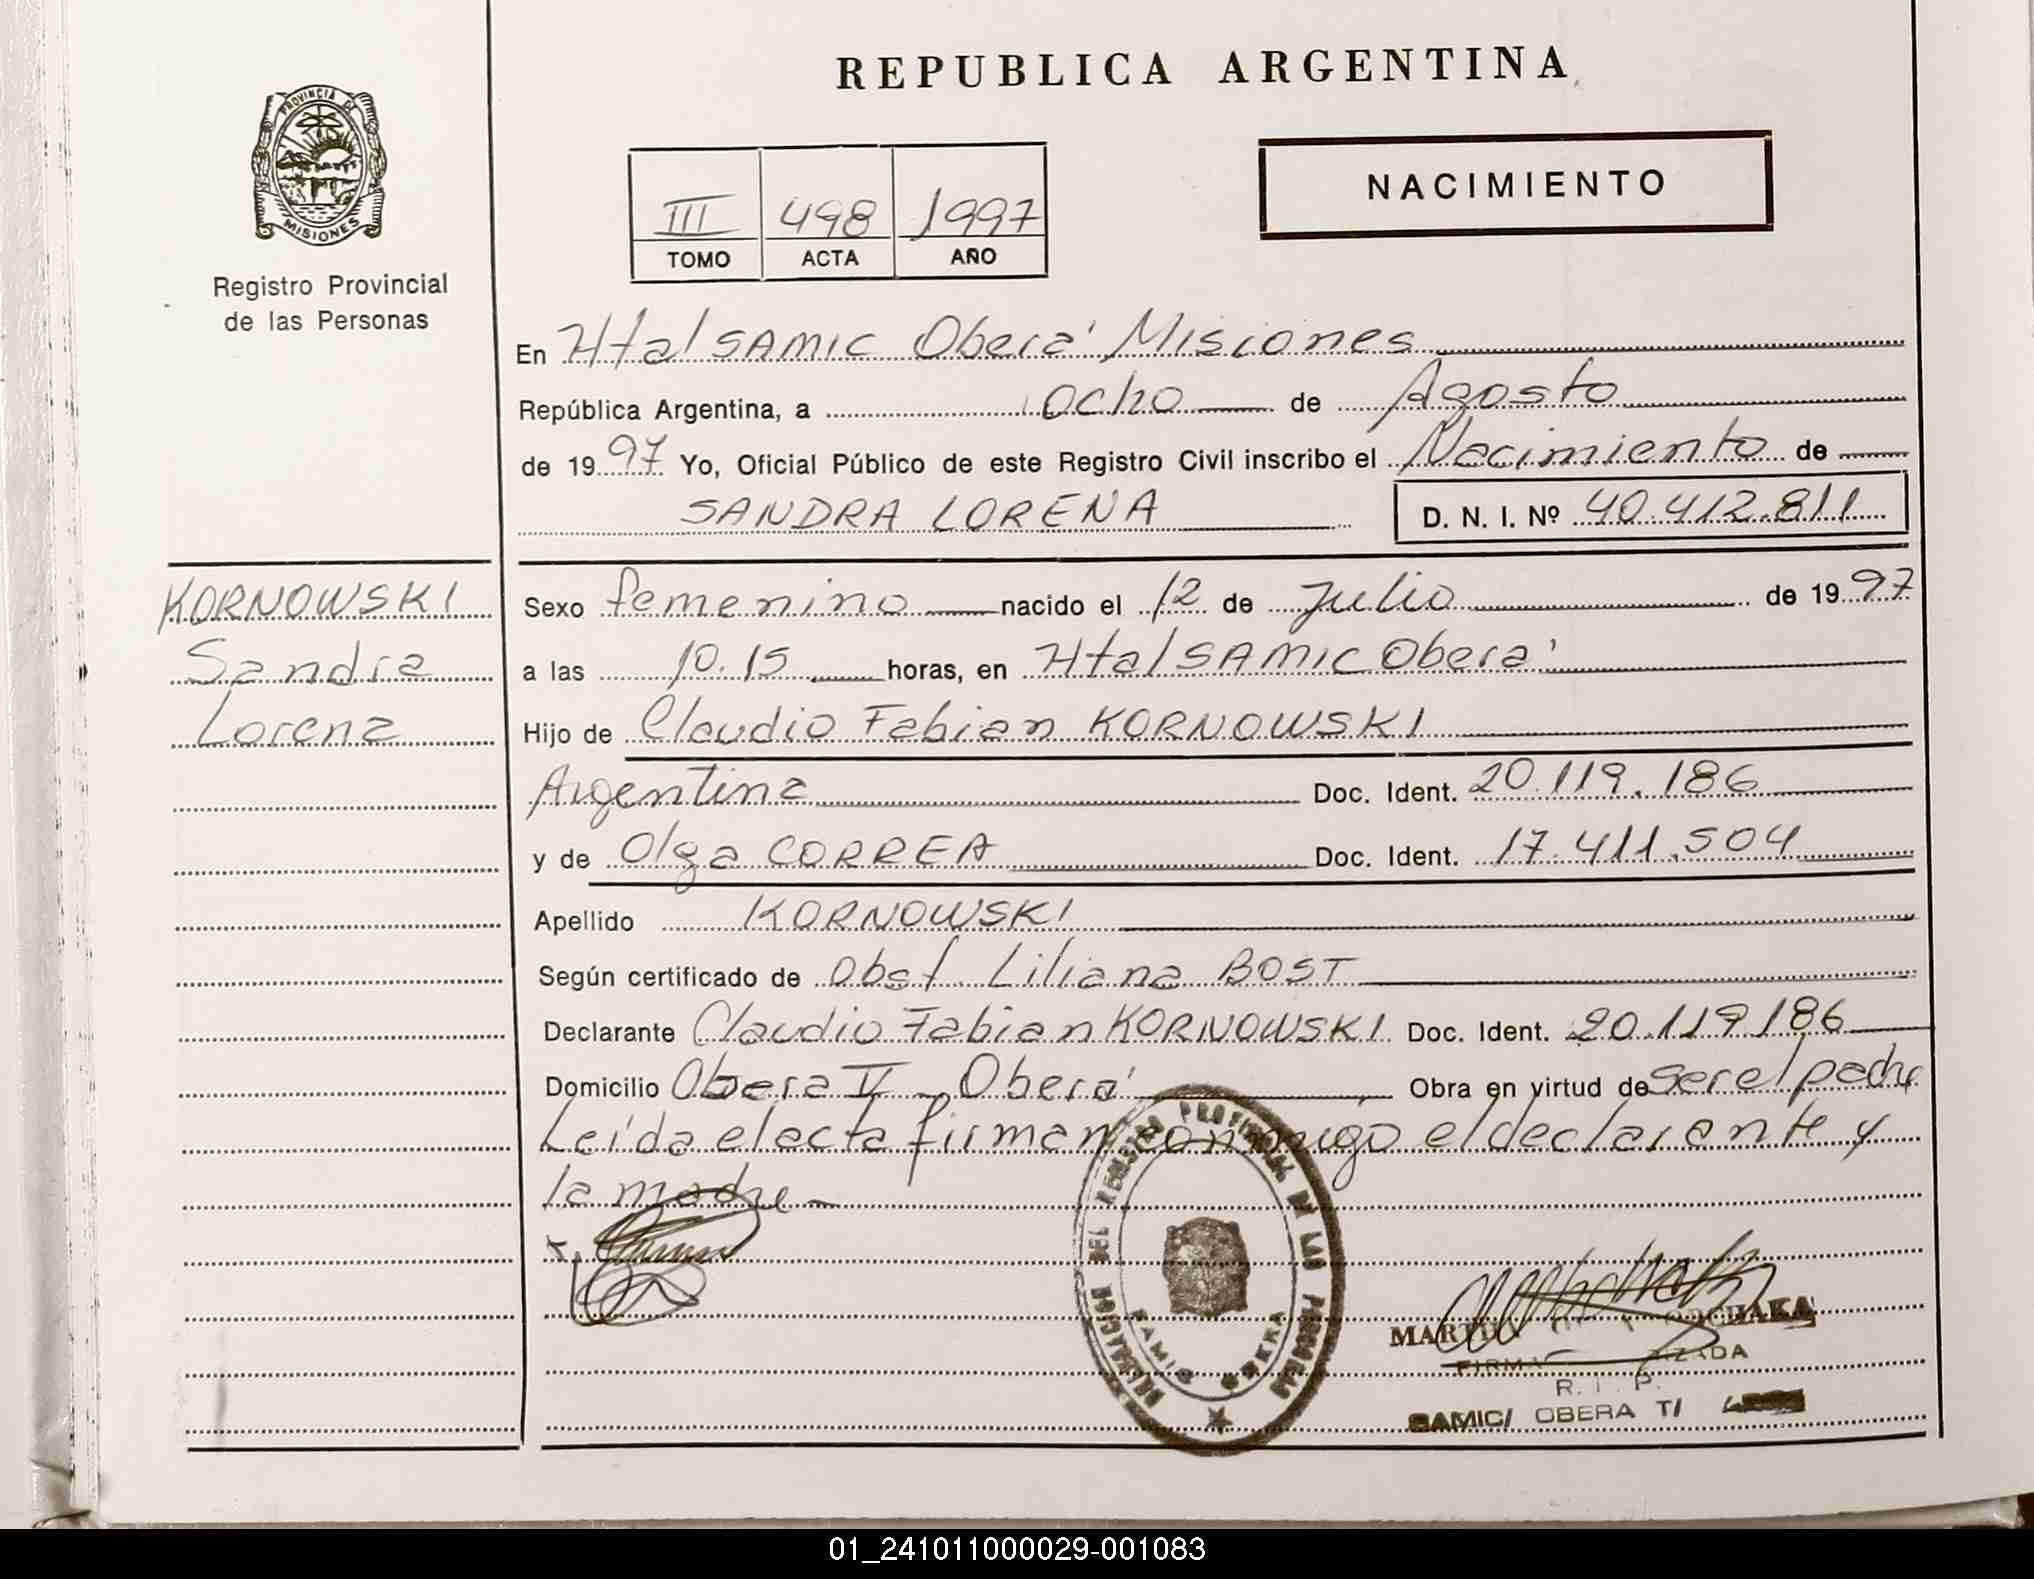 REPUBLICA ARGENTINA
PROVINCIA DE
MISIONES
Registro Provincial
de las Personas
III 498 1997
TOMO ACTA AÑO
NACIMIENTO
En Htal SAMIC Oberá Misiones
República Argentina, a ocho de Agosto
de 1997 Yo, Oficial Público de este Registro Civil inscribo el Nacimiento de
SANDRA LORENA D. N. I. Nº 40.412.811
KORNOWSKI
Sandra
Lorena
Sexo femenino nacido el 12 de Julio de 1997
a las 10.15 horas, en Htal SAMIC Oberá
Hijo de Claudio Fabian KORNOWSKI
Argentina Doc. Ident. 20.119.186
y de Olga CORREA Doc. Ident. 17.411.504
Apellido KORNOWSKI
Según certificado de Obst. Liliana BOST
Declarante Claudio Fabian KORNOWSKI Doc. Ident. 20.119.186
Domicilio Obera V - Oberá Obra en virtud de ser el padre
Leída el acta firman conmigo el declarante y
la madre -
DELEGACION DEL REGISTRO PROVINCIAL DE LAS PERSONAS
SAMIC OBERA
R. P.
SAMIC/ OBERA T/
01_241011000029-001083